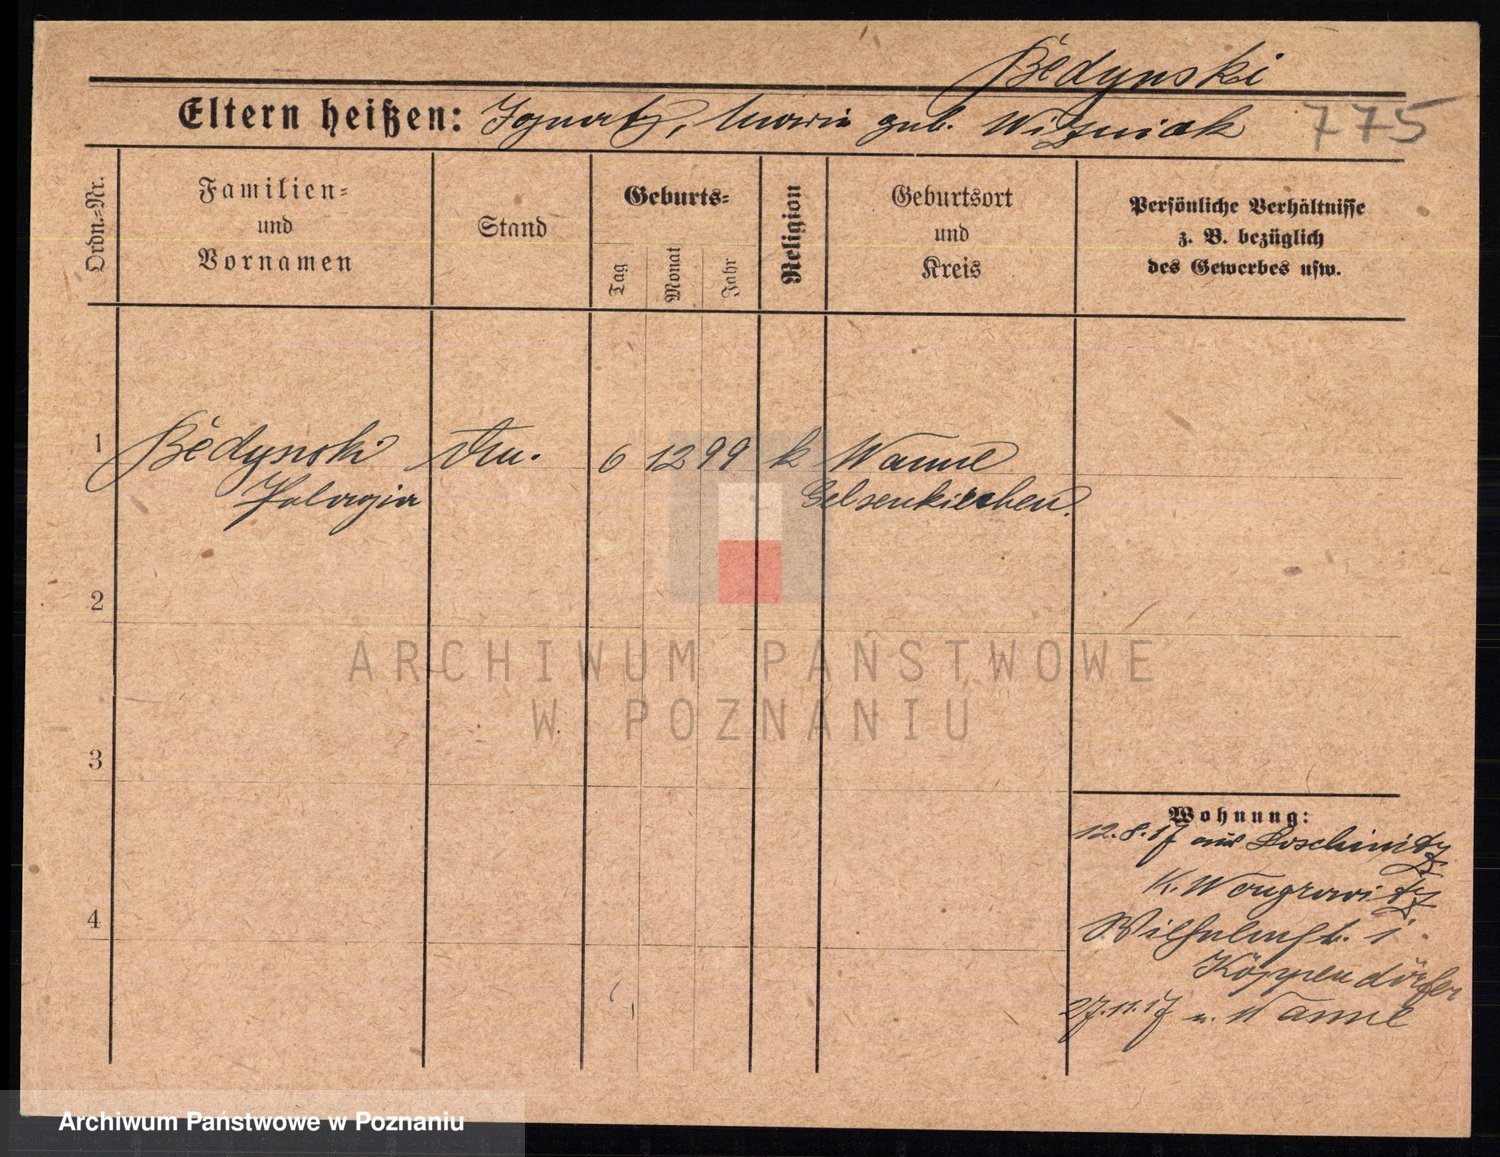 Bėdynski
Eltern heißen: Ignatz, Maria geb. Wizniak 775
Ordn=Nr.
Familien=
und
Vornamen
Stand
Geburts=
Tag
Monat
Jahr
Religion
Geburtsort
und
Kreis
Persönliche Verhältnisse
z. B. bezüglich
des Gewerbes usw.
1 Bėdynski 6 12 99 k Wanne
Pelagia Gelsenkirchen.
2
3
4
Wohnung:
12.8.17 aus Loschinitz
K. Wongrowitz
Wilhelmstr. 1
Köppendörfer
27.11.17 n. Wanne
ARCHIWUM PAŃSTWOWE
W POZNANIU
Archiwum Państwowe w Poznaniu